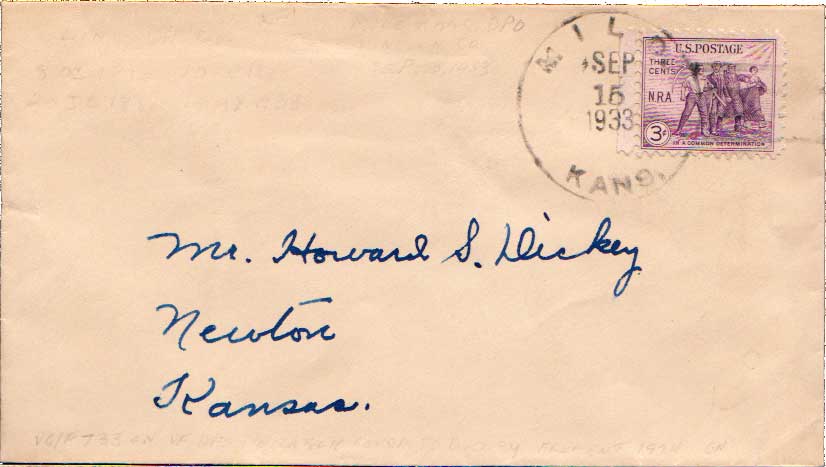 MILO
SEP
15
1933
KANS.
U.S. POSTAGE
THREE
CENTS
N.R.A.
3¢
IN A COMMON DETERMINATION
Mr. Howard S. Dickey
Newton
Kansas.